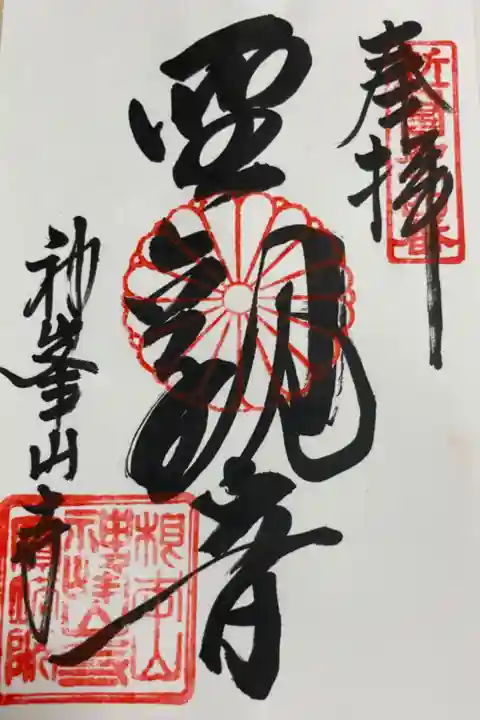 奉拝
聖観音
神峯山寺
根本山
神峰山寺